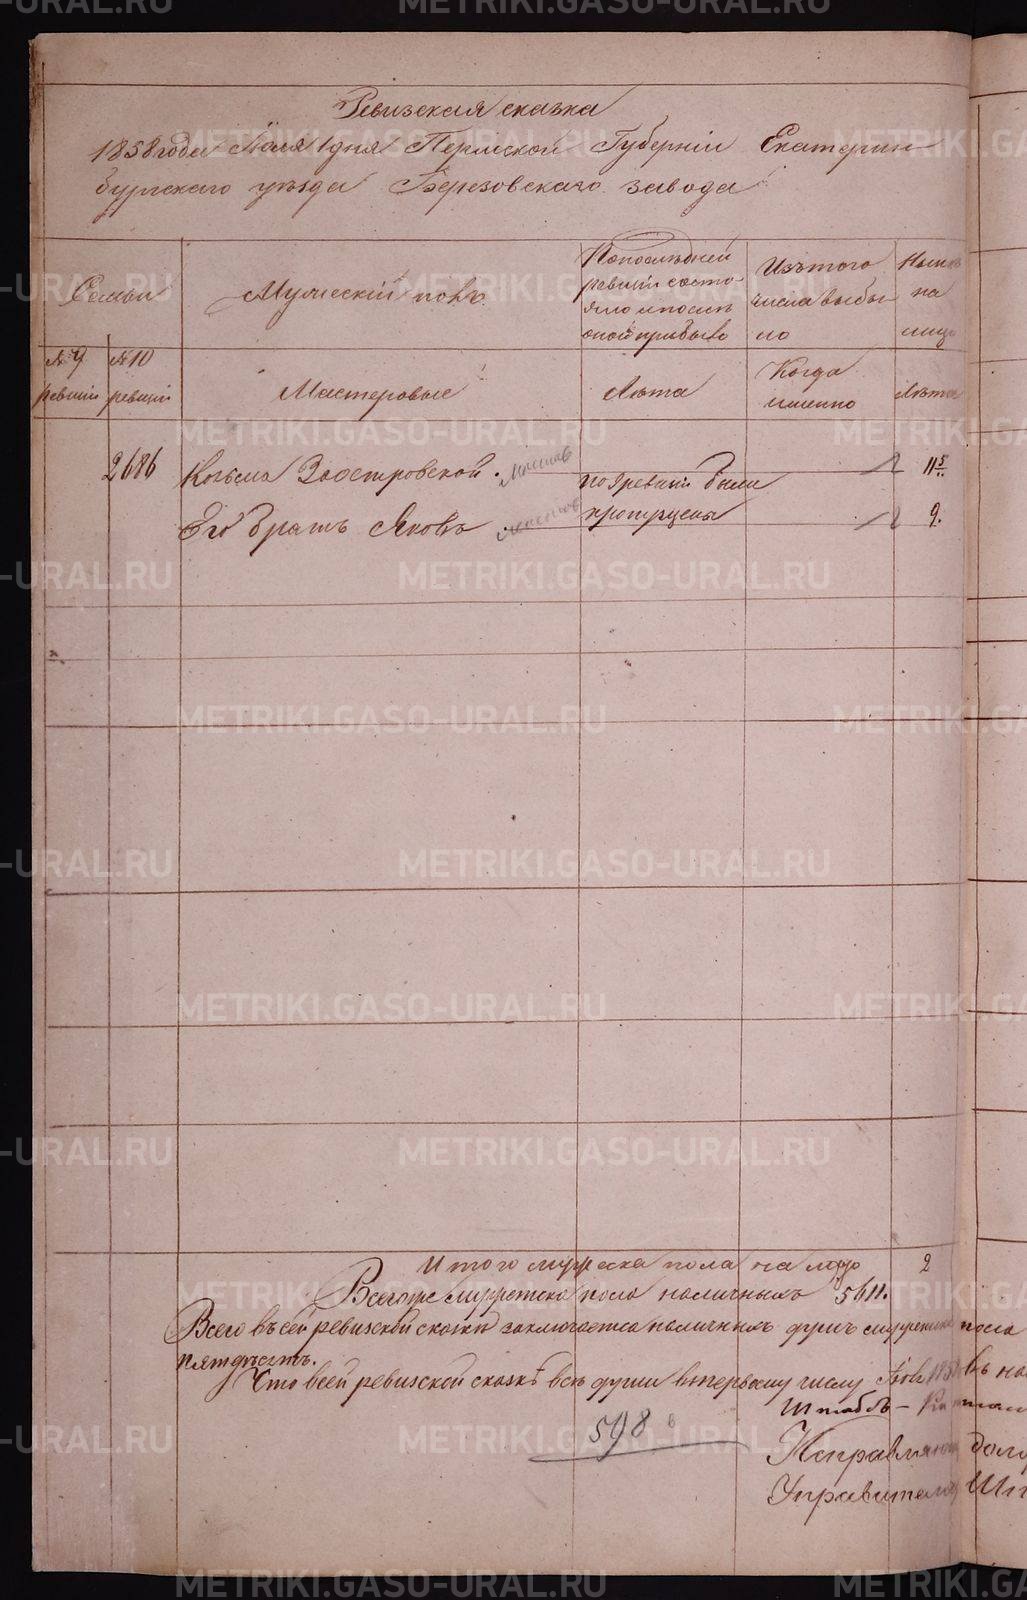 Ревизская сказка
1858 года Іюля 1 дня Пермской Губерніи Екатерин
бургскаго уѣзда Березовскаго завода
Семьи
Мужескій полъ
По последней
ревизіи состо-
яло и посли
оной прибыло
Изътого
числа выбы
ло
Ныне
на
лицо
№ 9
ревизіи
№ 10
ревизіи
Мастеровые
Лѣта
Когда
именно
Лѣта
2686
Козьма Заостровской
по 9 ревизіи были
11
Его братъ Яковъ
пропущены
9.
Итого мужеска пола на лицо 2
Всего же мужеска пола наличныхъ 5611.
Всего въ сей ревизской сказки заключается наличныхъ душъ мужеска пола
пятдесятъ.
Что въ сей ревизской сказкѣ всѣ души к первому числу
Штабсъ-
598
Исправляющ долж
Управителя
METRIKI.GASO-URAL.RU